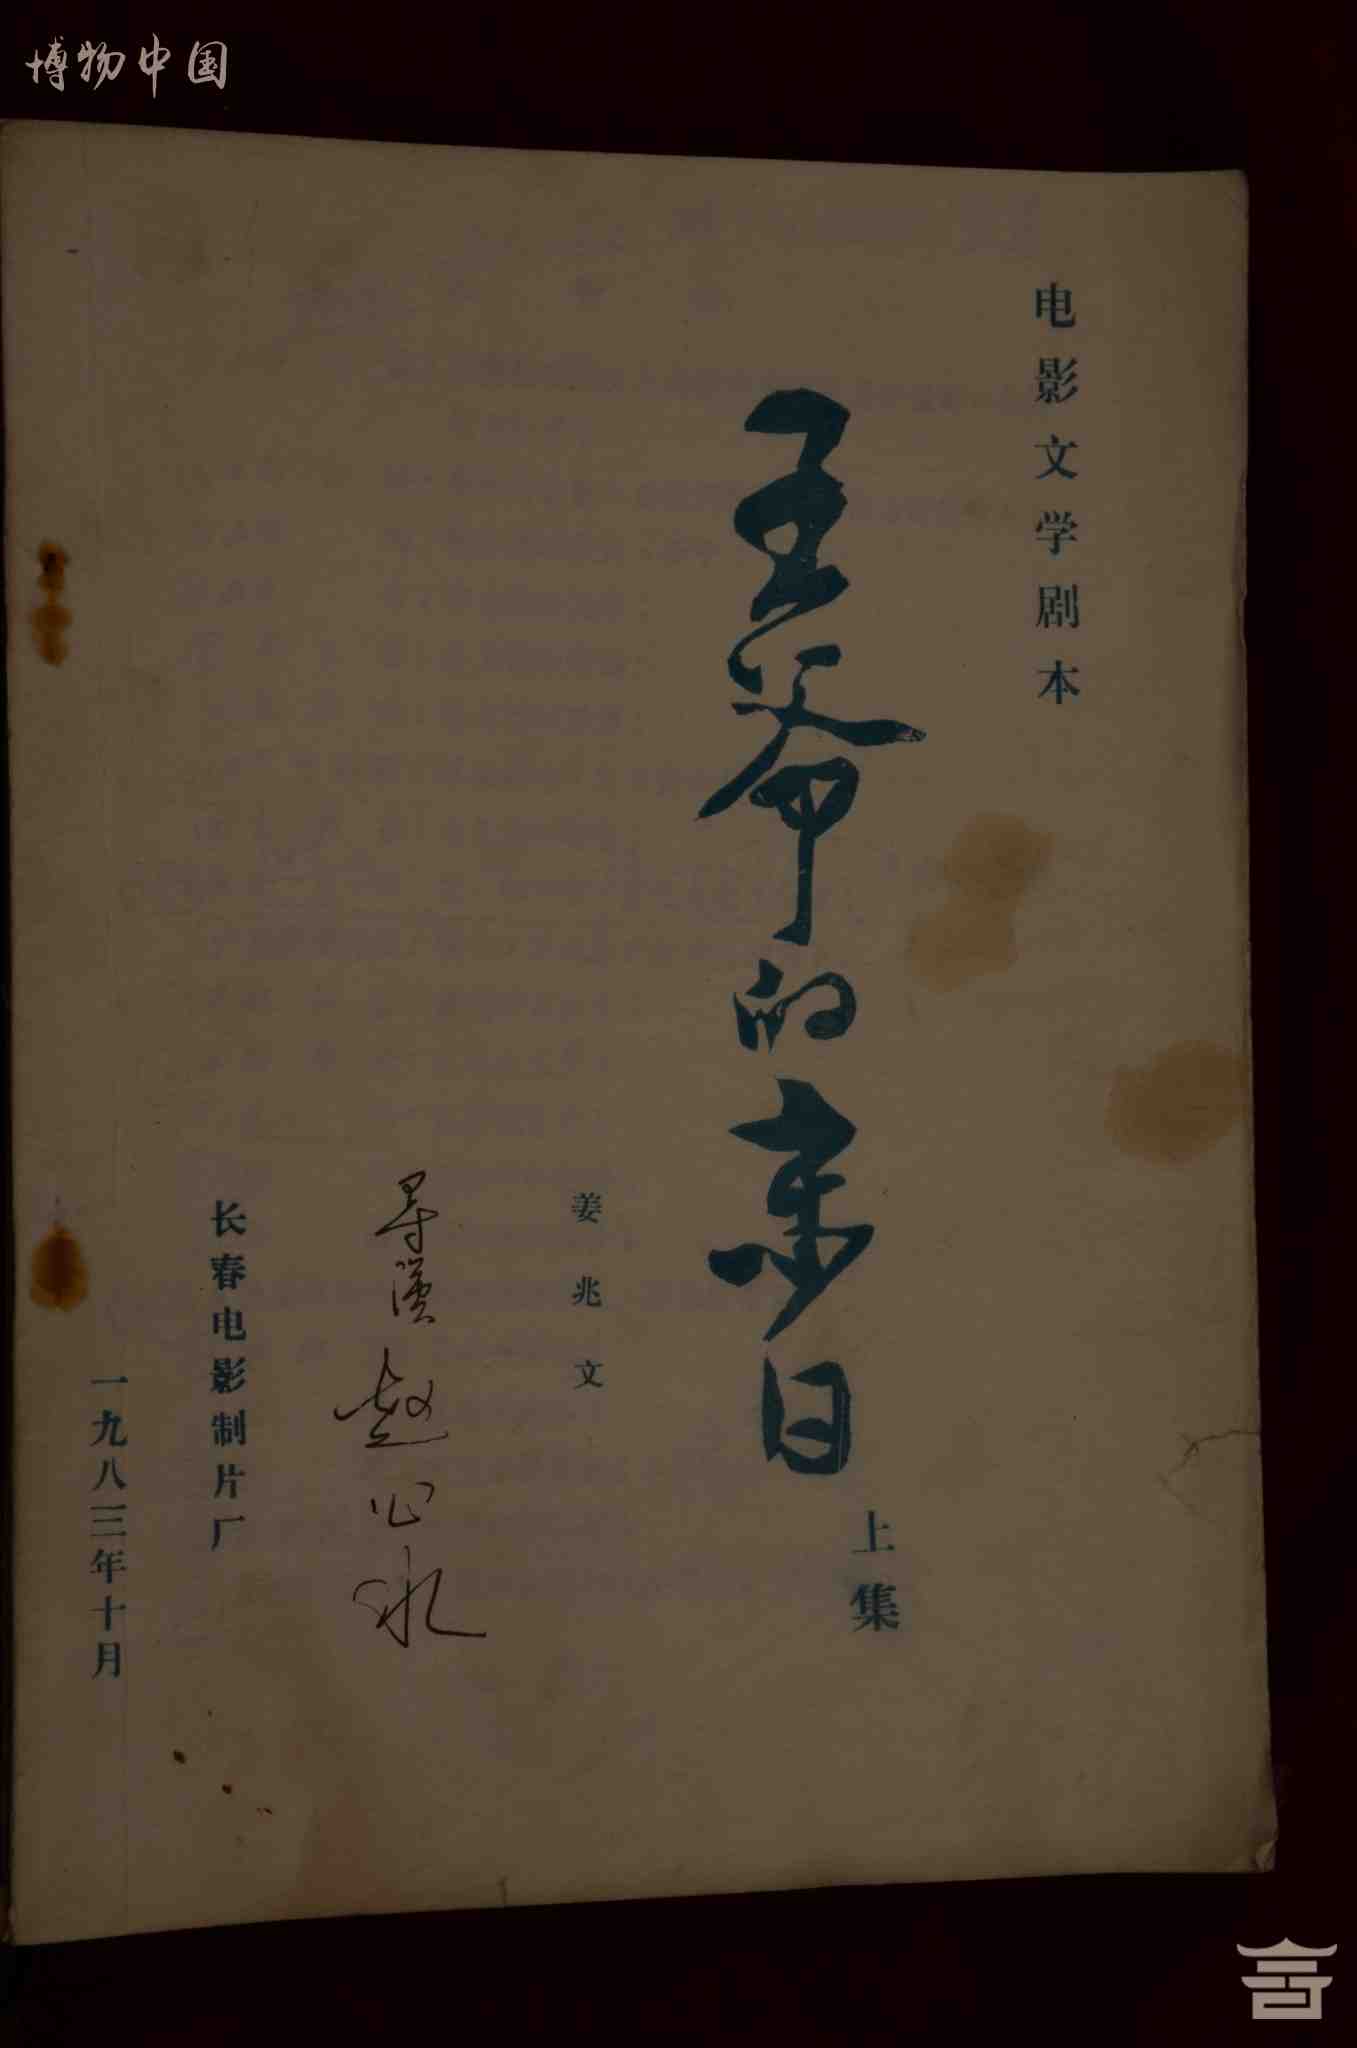 博物中国
电影文学剧本
王爷的末日
上集
姜兆文
导演
赵心水
长春电影制片厂
一九八三年十月